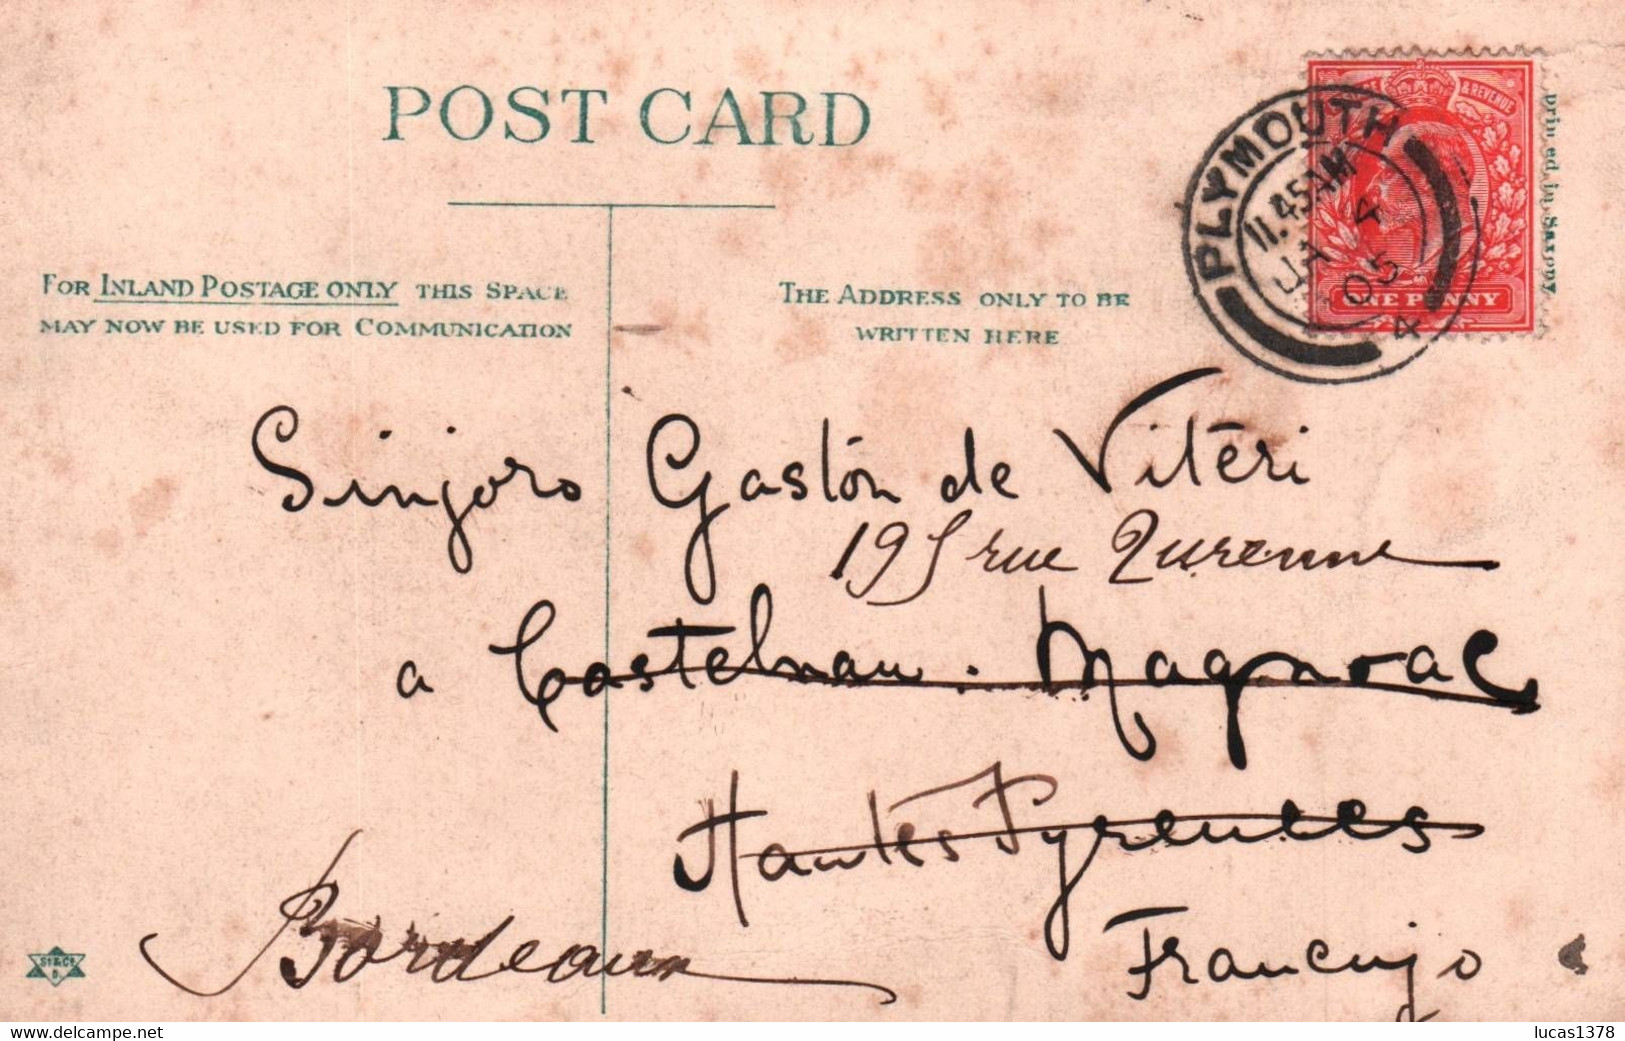 POST CARD
FOR INLAND POSTAGE ONLY THIS SPACE
MAY NOW BE USED FOR COMMUNICATION
THE ADDRESS ONLY TO BE
WRITTEN HERE
& REVENUE
ONE PENNY
PLYMOUTH
11.45AM
JA 4
05
4
printed in Saxony
Sinjoro Gastón de Vitéri
rue Turenne
a Castelnau. Magnoac
Hautes Pyrenees
Bordeaux
Francujo
St & Co
D.
www.delcampe.net
lucas1378